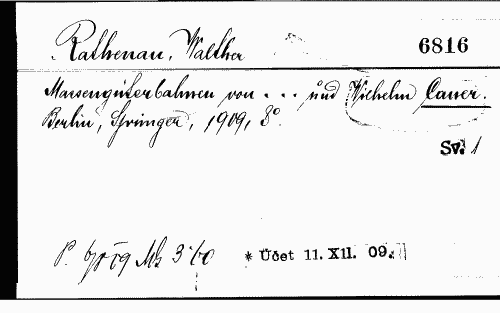 Rathenau, Walther 6816
Massengüterbahnen von ... und Wilhelm Cauer.
Berlin, Springer, 1909, 8°.
Sv. 1
P. Mk 3.60 * Účet 11. XII. 09.